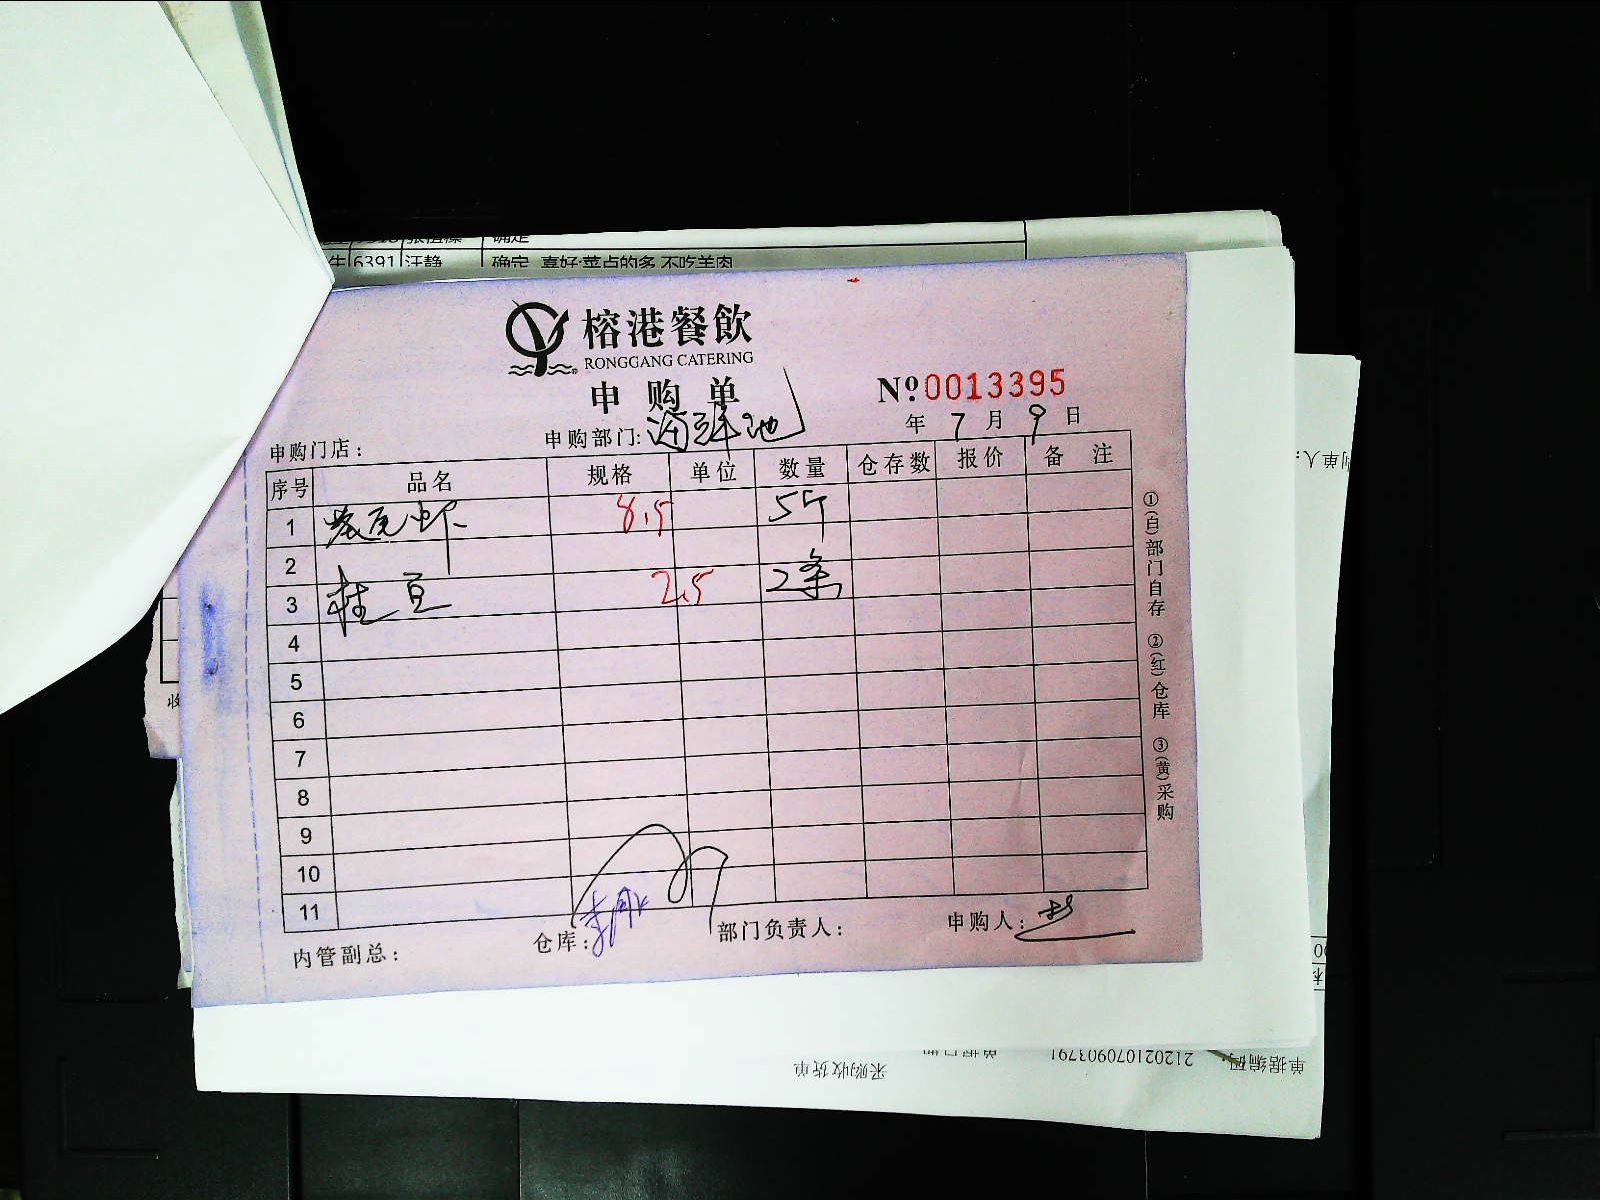 6391 汪静 确定 喜好:菜点的多,不吃羊肉
榕港餐飲
RONGGANG CATERING
申购单
№ 0013395
年 7 月 9 日
申购门店：
申购部门: 海鲜池
序号 品名 规格 单位 数量 仓存数 报价 备 注
1 虾 8.5 5斤
2
3 桂 2.5 2条
4
5
6
7
8
9
10
11
内管副总：
仓库：
部门负责人：
申购人：
①(白)部门自存 ②(红)仓库 ③(黄)采购
采购收货单
单据日期
212021070903791
单据编码: